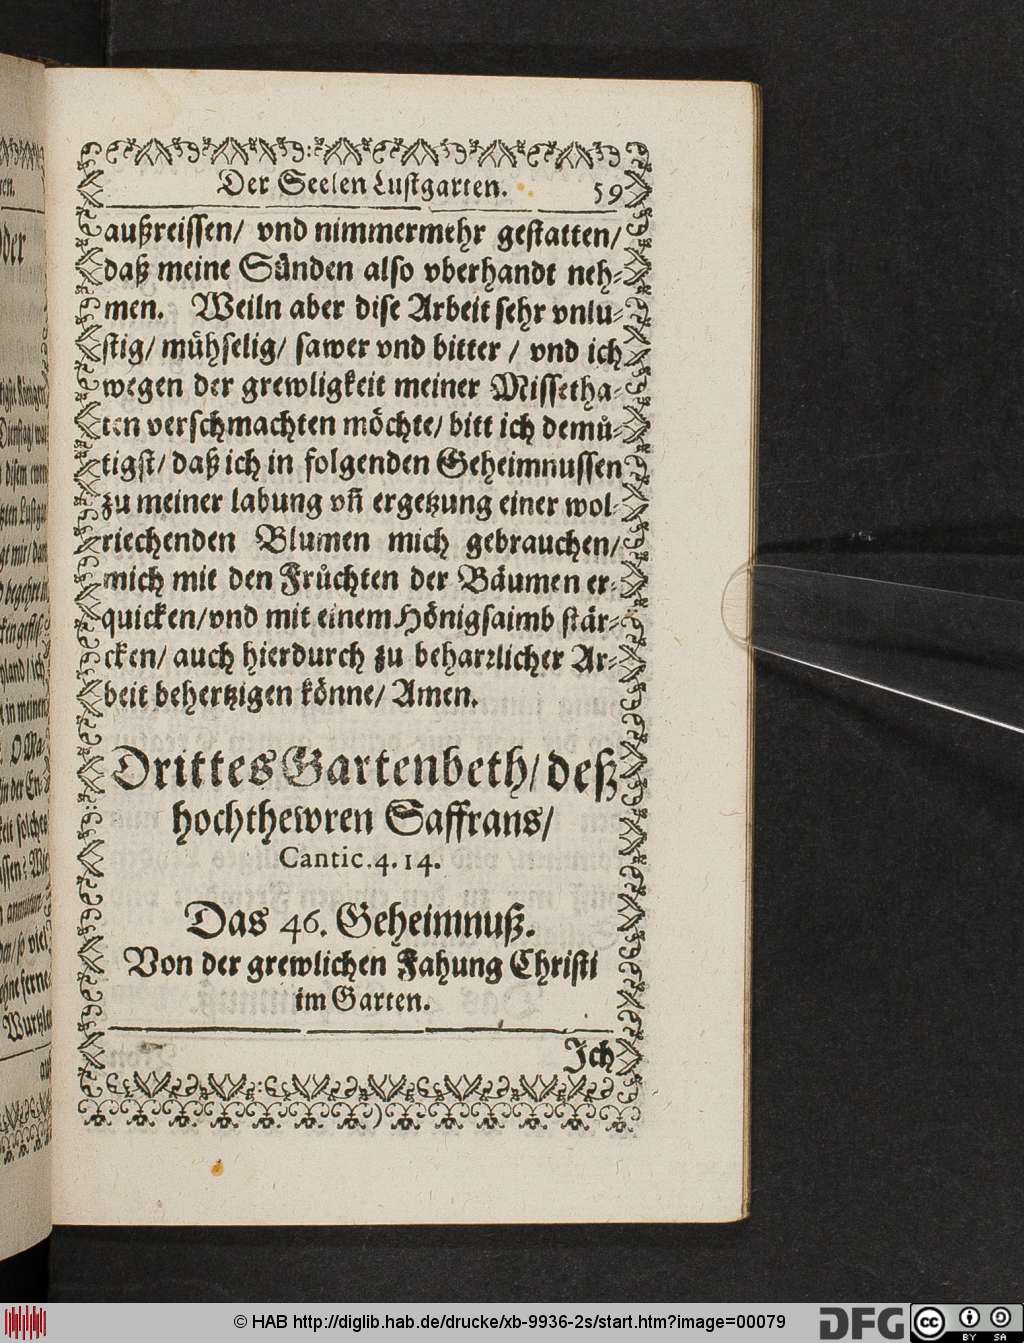 Der Seelen Lustgarten. 59
außreissen/ vnd nimmermehr gestatten/
daß meine Sünden also vberhandt neh-
men. Weiln aber dise Arbeit sehr vnlu-
stig/ mühselig/ sawer vnd bitter / vnd ich
wegen der grewligkeit meiner Missetha-
ten verschmachten möchte/ bitt ich demü-
tigst/ daß ich in folgenden Geheimnussen
zu meiner labung vñ ergetzung einer wol-
riechenden Blumen mich gebrauchen/
mich mit den Früchten der Bäumen er-
quicken/vnd mit einem Hönigsaimb stär-
cken/ auch hierdurch zu beharrlicher Ar-
beit behertzigen könne/ Amen.
Drittes Gartenbeth/ deß
hochthewren Saffrans/
Cantic.4.14.
Das 46. Geheimnuß.
Von der grewlichen Fahung Christi
im Garten.
Ich
© HAB http://diglib.hab.de/drucke/xb-9936-2s/start.htm?image=00079
DFG
cc
BY SA